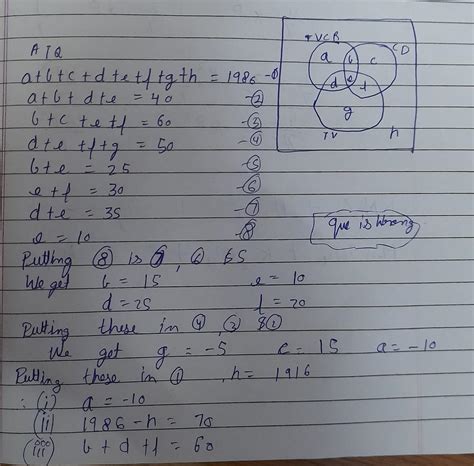 ATQ
a+b+c+d+e+f+g+h = 1986 -①
a+b+d+e = 40 -②
b+c+e+f = 60 -③
d+e+f+g = 50 -④
b+e = 25 -⑤
e+f = 30 -⑥
d+e = 35 -⑦
e = 10 -⑧
VCR
CD
a b c
d e f
g
TV
h
que is wrong
Putting ⑧ is ⑦, ⑥ &5
We get b = 15 e = 10
d = 25 f = 20
Putting these in ④, ③ &②
We get g = -5 c = 15 a = -10
Putting these in ①, h = 1916
∴ (i) a = -10
(ii) 1986 - h = 70
(iii) b + d + f = 60